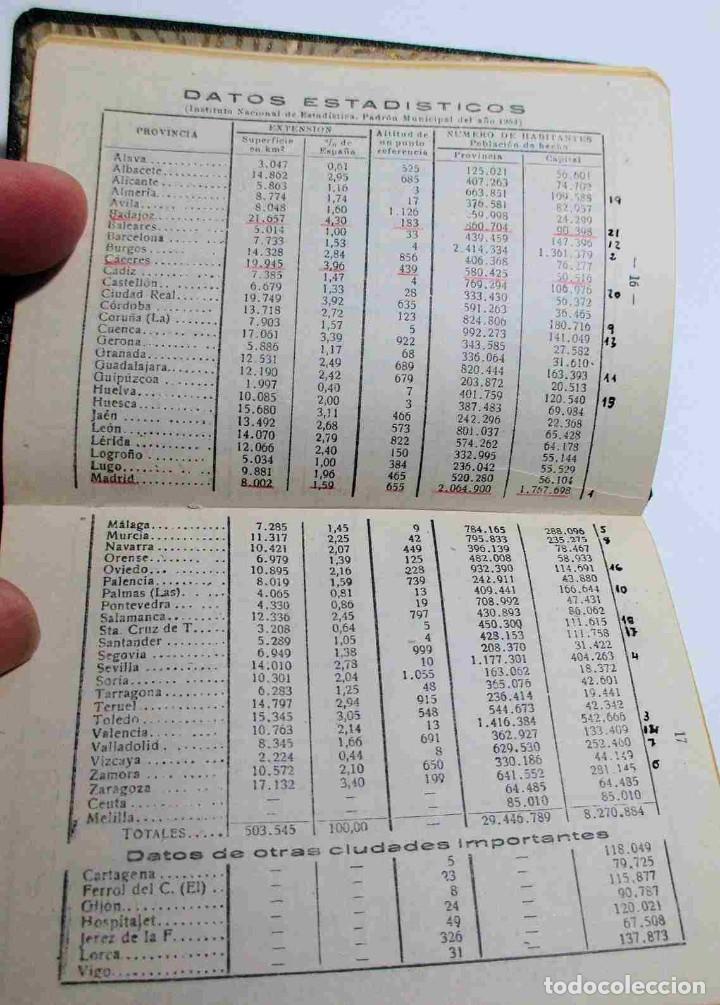 DATOS ESTADISTICOS
(Instituto Nacional de Estadística, Padrón Municipal del año 1954)
PROVINCIA EXTENSION Altitud de un punto referencia NUMERO DE HABITANTES
Superficie en km² % de España Población de hecho
Provincia Capital
Alava 3.047 0,61 525 125.021 56.601
Albacete 14.862 2,95 685 407.263 74.702
Alicante 5.863 1,16 3 663.851 109.588 19
Almería 8.774 1,74 17 376.581 82.957
Avila 8.048 1,60 1.126 259.998 24.299
Badajoz 21.657 4,30 183 860.704 90.398 21
Baleares 5.014 1,00 33 439.459 147.396 12
Barcelona 7.733 1,53 4 2.414.334 1.361.379 2
Burgos 14.328 2,84 856 406.368 76.277
Cáceres 19.945 3,96 439 580.425 50.516
Cadiz 7.385 1,47 4 769.294 106.976 20
Castellón 6.679 1,33 28 333.430 56.372
Ciudad Real 19.749 3,92 635 591.263 36.465
Córdoba 13.718 2,72 123 824.806 180.716 9
Coruña (La) 7.903 1,57 5 992.273 141.049 13
Cuenca 17.061 3,39 922 343.585 27.582
Gerona 5.886 1,17 68 336.064 31.610
Granada 12.531 2,49 689 820.444 163.393 11
Guadalajara 12.190 2,42 679 203.872 20.513
Guipúzcoa 1.997 0,40 7 401.759 120.540 15
Huelva 10.085 2,00 3 387.483 69.984
Huesca 15.680 3,11 466 242.296 22.368
Jaén 13.492 2,68 573 801.037 65.428
León 14.070 2,79 822 574.262 64.178
Lérida 12.066 2,40 150 332.995 55.144
Logroño 5.034 1,00 384 236.042 55.529
Lugo 9.881 1,96 465 520.280 56.104
Madrid 8.002 1,59 655 2.064.900 1.767.698 1
— 16 —
Málaga 7.285 1,45 9 784.165 288.096 5
Murcia 11.317 2,25 42 795.833 235.275 8
Navarra 10.421 2,07 449 396.139 78.467
Orense 6.979 1,39 125 482.008 58.933
Oviedo 10.895 2,16 228 932.390 114.691 16
Palencia 8.019 1,59 739 242.911 43.880
Palmas (Las) 4.065 0,81 13 409.441 166.644 10
Pontevedra 4.330 0,86 19 708.992 47.431
Salamanca 12.336 2,45 797 430.893 86.062
Sta. Cruz de T. 3.208 0,64 5 450.300 111.615 18
Santander 5.289 1,05 4 428.153 111.758 17
Segovia 6.949 1,38 999 208.370 31.422
Sevilla 14.010 2,78 10 1.177.301 404.263 4
Soria 10.301 2,04 1.055 163.062 18.372
Tarragona 6.283 1,25 48 365.076 42.601
Teruel 14.797 2,94 915 236.414 19.441
Toledo 15.345 3,05 548 544.673 42.342
Valencia 10.763 2,14 13 1.416.384 542.666 3
Valladolid 8.345 1,66 691 362.927 133.409 14
Vizcaya 2.224 0,44 8 629.530 252.460 7
Zamora 10.572 2,10 650 330.186 44.149
Zaragoza 17.132 3,40 199 641.552 281.145 6
Ceuta — — — 64.485 64.485
Melilla — — — 85.010 85.010
TOTALES 503.545 100,00 — 29.446.789 8.270.884
17
Datos de otras ciudades importantes
Cartagena — — 5 — 118.049
Ferrol del C. (El) — — 23 — 79.725
Gijón — — 8 — 115.877
Hospitalet — — 24 — 90.787
Jerez de la F. — — 49 — 120.021
Lorca — — 326 — 67.508
Vigo — — 31 — 137.873
todocoleccion